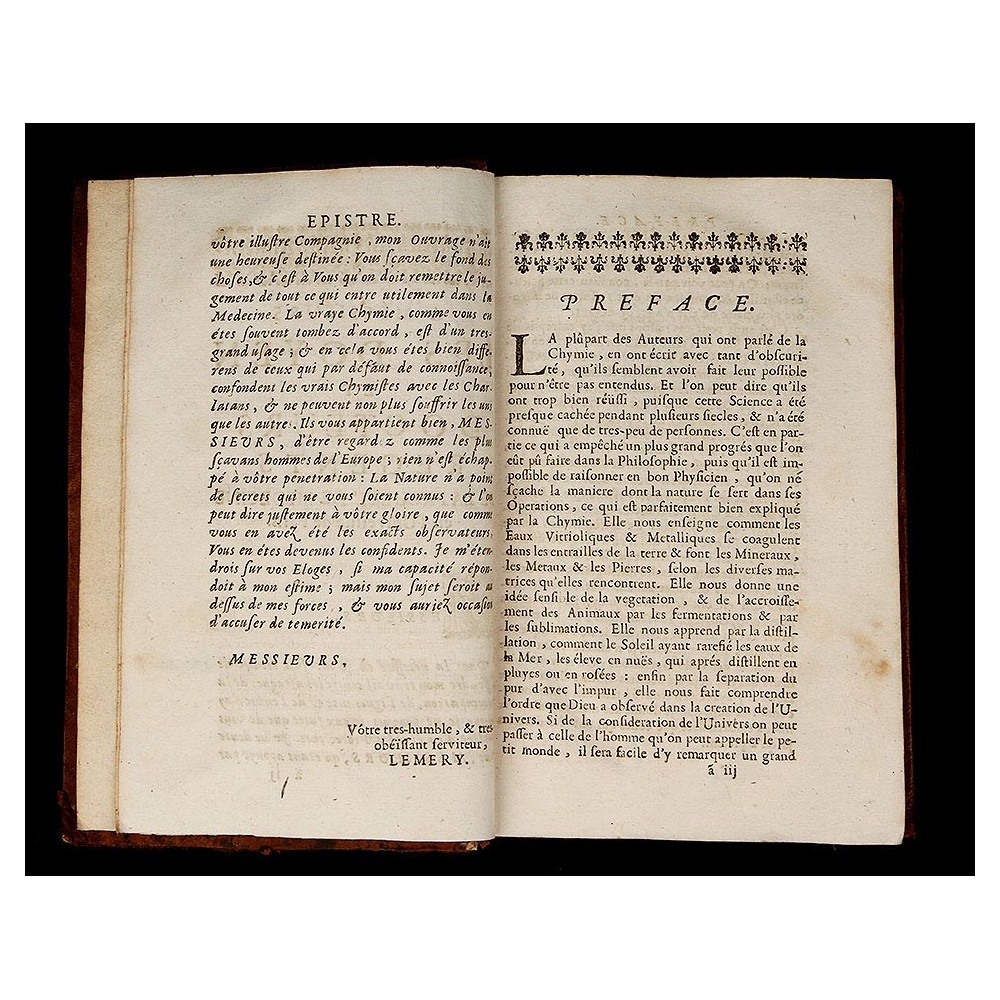 EPISTRE.
vôtre illuſtre Compagnie, mon Ouvrage n'ait
une heureuſe deſtinée: Vous ſçavez le fond des
choſes,& c'eſt à Vous qu'on doit remettre le ju-
gement de tout ce qui entre utilement dans la
Medecine. La vraye Chymie, comme vous en
étes ſouvent tombez d'accord, eſt d'un tres-
grand uſage; & en cela vous étes bien diffe-
rens de ceux qui par défaut de connoiſſance,
confondent les vrais Chymiſtes avec les Char-
latans, & ne peuvent non plus ſouffrir les uns
que les autres. Ils vous appartient bien, MES-
SIEURS, d'être regard z comme les plus
ſçavans hommes de l'Europe; rien n'eſt échap-
pé à vôtre penetration: La Nature n'a point
de ſecrets qui ne vous ſoient connus: & l'on
peut dire juſtement à vôtre gloire, que comme
vous en avez été les exacts obſervateurs,
Vous en étes devenus les confidents. Je m'éten-
drois ſur vos Eloges, ſi ma capacité répon-
doit à mon eſtime; mais mon ſujet ſeroit au
deſſus de mes forces, & vous auriez occaſion
d'accuſer de temerité.
MESSIEVRS,
Vôtre tres-humble, & tres
obéïſſant ſerviteur,
LEMERY.
PREFACE.
LA plûpart des Auteurs qui ont parlé de la
Chymie, en ont écrit avec tant d'obſcuri-
té, qu'ils ſemblent avoir fait leur poſſible
pour n'être pas entendus. Et l'on peut dire qu'ils
ont trop bien réüſſi, puiſque cette Science a été
preſque cachée pendant pluſieurs ſiecles, & n'a été
connuë que de tres-peu de perſonnes. C'eſt en par-
tie ce qui a empêché un plus grand progrés que l'on
eût pû faire dans la Philoſophie, puis qu'il eſt im-
poſſible de raiſonner en bon Phyſicien, qu'on né
ſçache la maniere dont la nature ſe ſert dans ſes
Operations, ce qui eſt parfaitement bien expliqué
par la Chymie. Elle nous enſeigne comment les
Eaux Vitrioliques & Metalliques ſe coagulent
dans les entrailles de la terre & font les Mineraux,
les Metaux & les Pierres, ſelon les diverſes ma-
trices qu'elles rencontrent. Elle nous donne une
idée ſenſible de la vegetation, & de l'accroiſſe-
ment des Animaux par les fermentations & par
les ſublimations. Elle nous apprend par la diſtil-
lation, comment le Soleil ayant rarefié les eaux de
la Mer, les éleve en nuës, qui aprés diſtillent en
pluyes ou en roſées: enfin par la ſeparation du
pur d'avec l'impur, elle nous fait comprendre
l'ordre que Dieu a obſervé dans la creation de l'U-
nivers. Si de la conſideration de l'Univers on peut
paſſer à celle de l'homme qu'on peut appeller le pe-
tit monde, il ſera facile d'y remarquer un grand
á iij